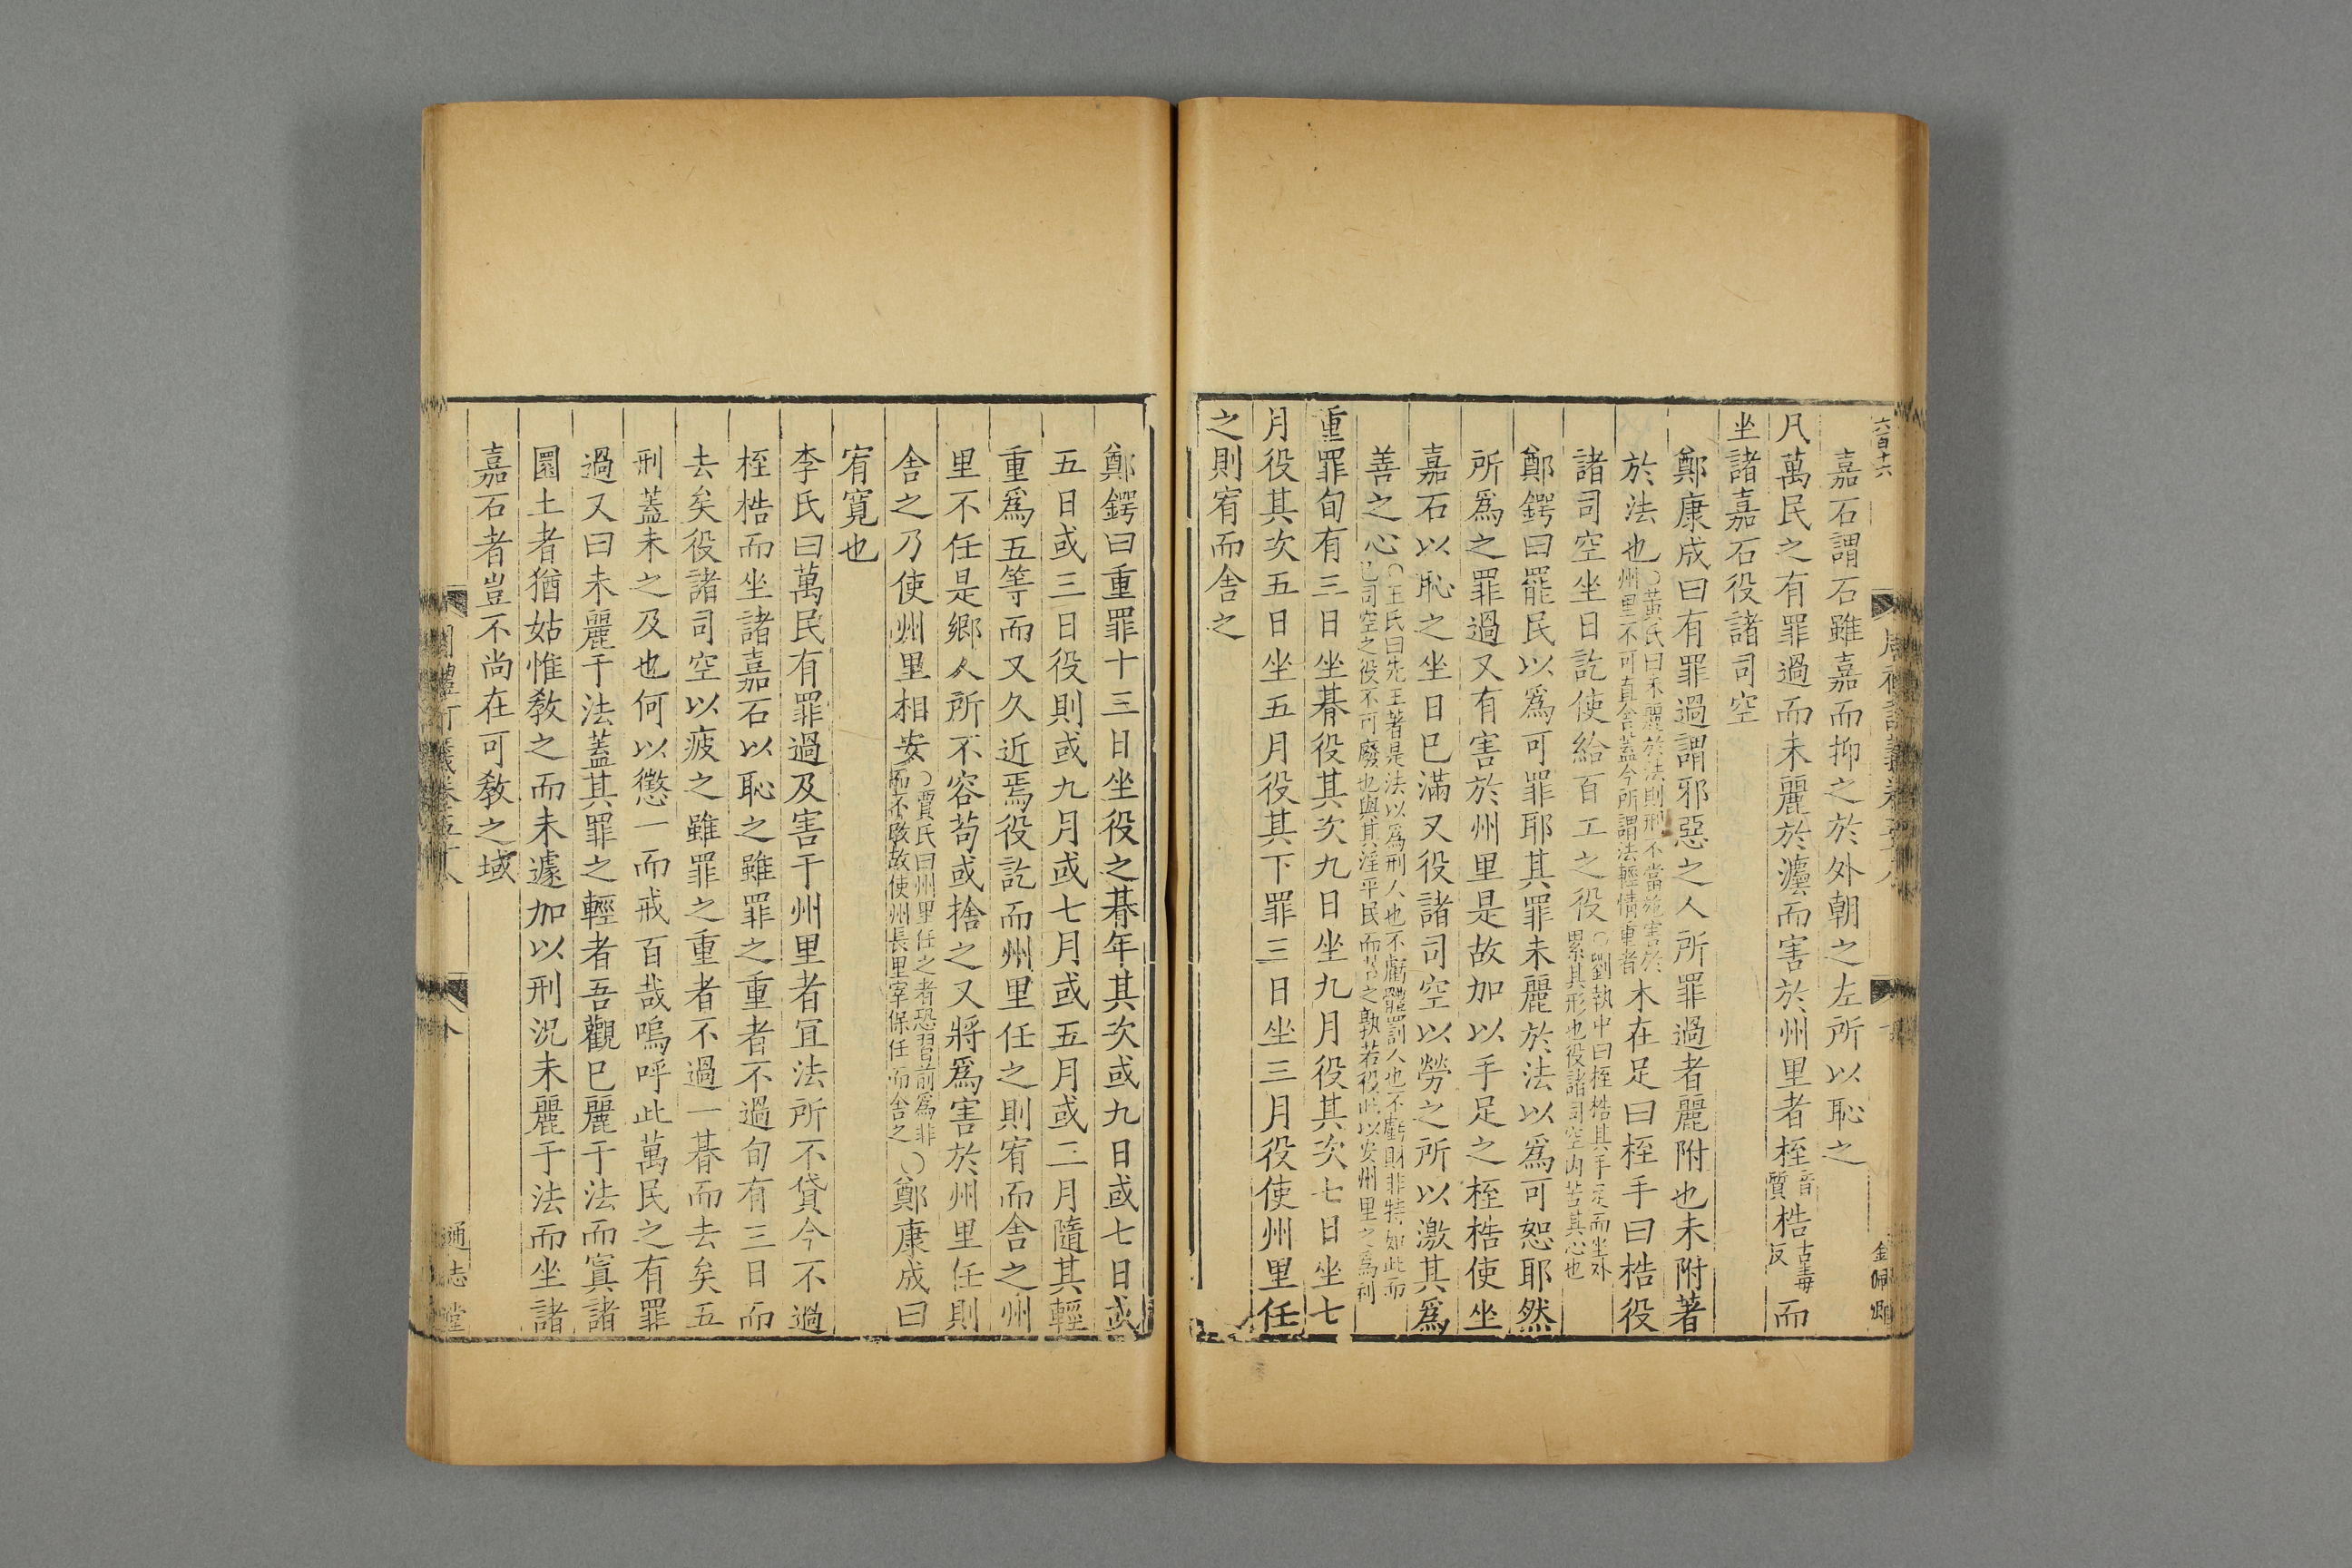 六百十六
嘉石謂石雖嘉而抑之於外朝之左所以恥之
凡萬民之有罪過而未麗於灋而害於州里者桎音質梏古毒反而
坐諸嘉石役諸司空
鄭康成曰有罪過謂邪惡之人所罪過者麗附也未附著
於法也○黃氏曰未麗於法則刑不當施害於州里不可直舍蓋今所謂法輕情重者木在足曰桎手曰梏役
諸司空坐日訖使給百工之役○劉執中曰桎梏其手足而坐外累其形也役諸司空內苦其心也
鄭鍔曰罷民以爲可罪耶其罪未麗於法以爲可恕耶然
所爲之罪過又有害於州里是故加以手足之桎梏使坐
嘉石以恥之坐日已滿又役諸司空以勞之所以激其爲
善之心○王氏曰先王著是法以爲刑人也不虧體罰人也不虧財非特如此而已司空之役不可廢也與其淫平民而苦之孰若役此以安州里之爲利
重罪旬有三日坐朞役其次九日坐九月役其次七日坐七
月役其次五日坐五月役其下罪三日坐三月役使州里任
之則宥而舍之
金佩卿
鄭鍔曰重罪十三日坐役之朞年其次或九日或七日或
五日或三日役則或九月或七月或五月或三月隨其輕
重爲五等而又久近焉役訖而州里任之則宥而舍之州
里不任是鄉人所不容苟或捨之又將爲害於州里任則
舍之乃使州里相安○賈氏曰州里任之者恐習前爲非而不改故使州長里宰保任而舍之○鄭康成曰
宥寬也
李氏曰萬民有罪過及害于州里者宜法所不貸今不過
桎梏而坐諸嘉石以恥之雖罪之重者不過旬有三日而
去矣役諸司空以疲之雖罪之重者不過一朞而去矣五
刑蓋未之及也何以懲一而戒百哉嗚呼此萬民之有罪
過又曰未麗于法蓋其罪之輕者吾觀已麗于法而寘諸
圜土者猶姑惟教之而未遽加以刑況未麗于法而坐諸
嘉石者豈不尚在可教之域
通志堂